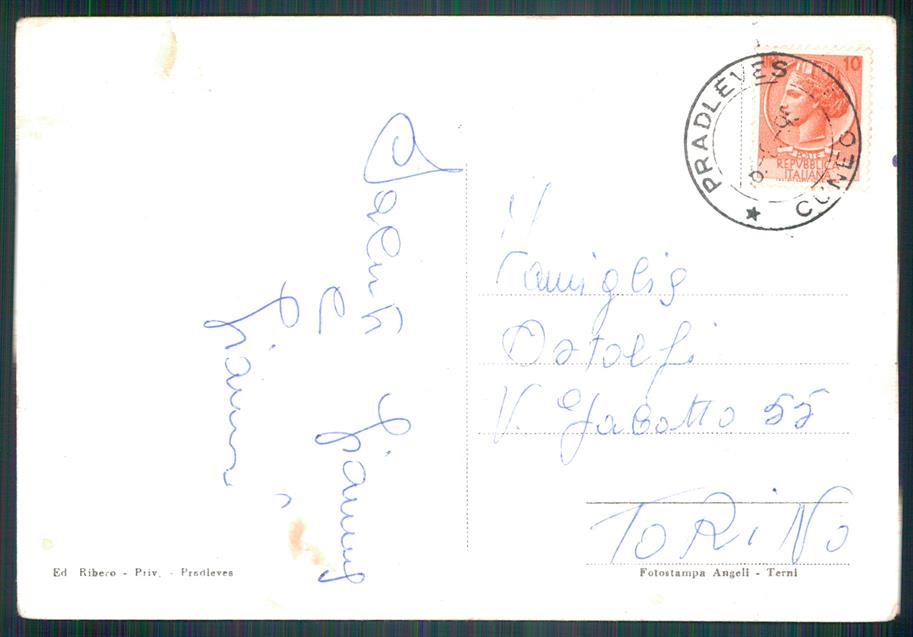 PRADLEVES
CUNEO
LIRE 10
POSTE
REPVBBLICA
ITALIANA
Saluti
Gianni
Famiglia
Astolfi
V. Gabotto 55
TORINO
Ed Ribero - Priv. - Pradleves
Fotostampa Angeli - Terni